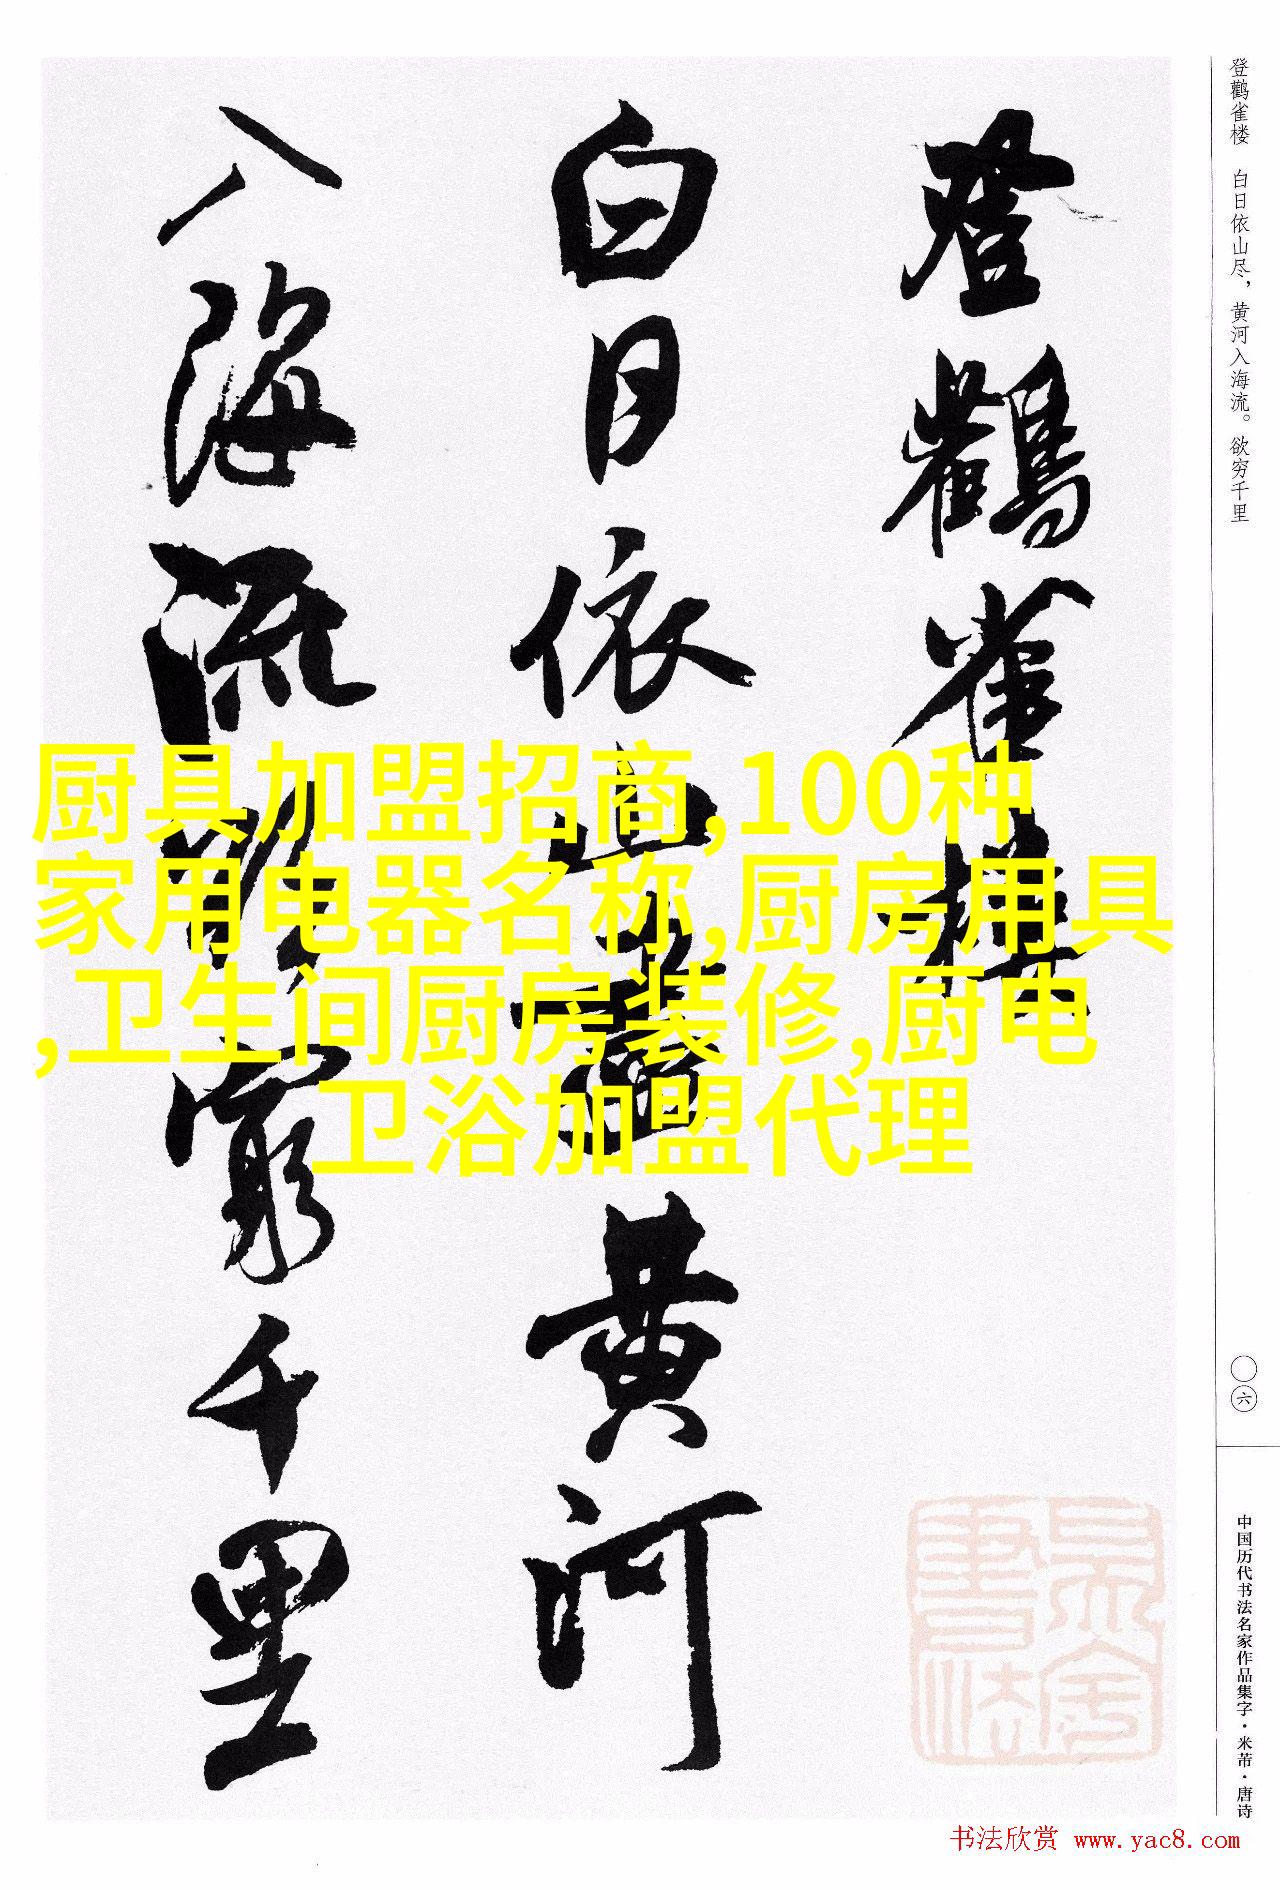 登鹳雀楼
白日依山尽黄河
入海流欲穷千里
登鹳雀楼 白日依山尽，黄河入海流。欲穷千里
厨具加盟招商,100种
家用电器名称,厨房用具
,卫生间厨房装修,厨电
卫浴加盟代理
〇六
中国历代书法名家作品集字·米芾·唐诗
书法欣赏 www.yac8.com